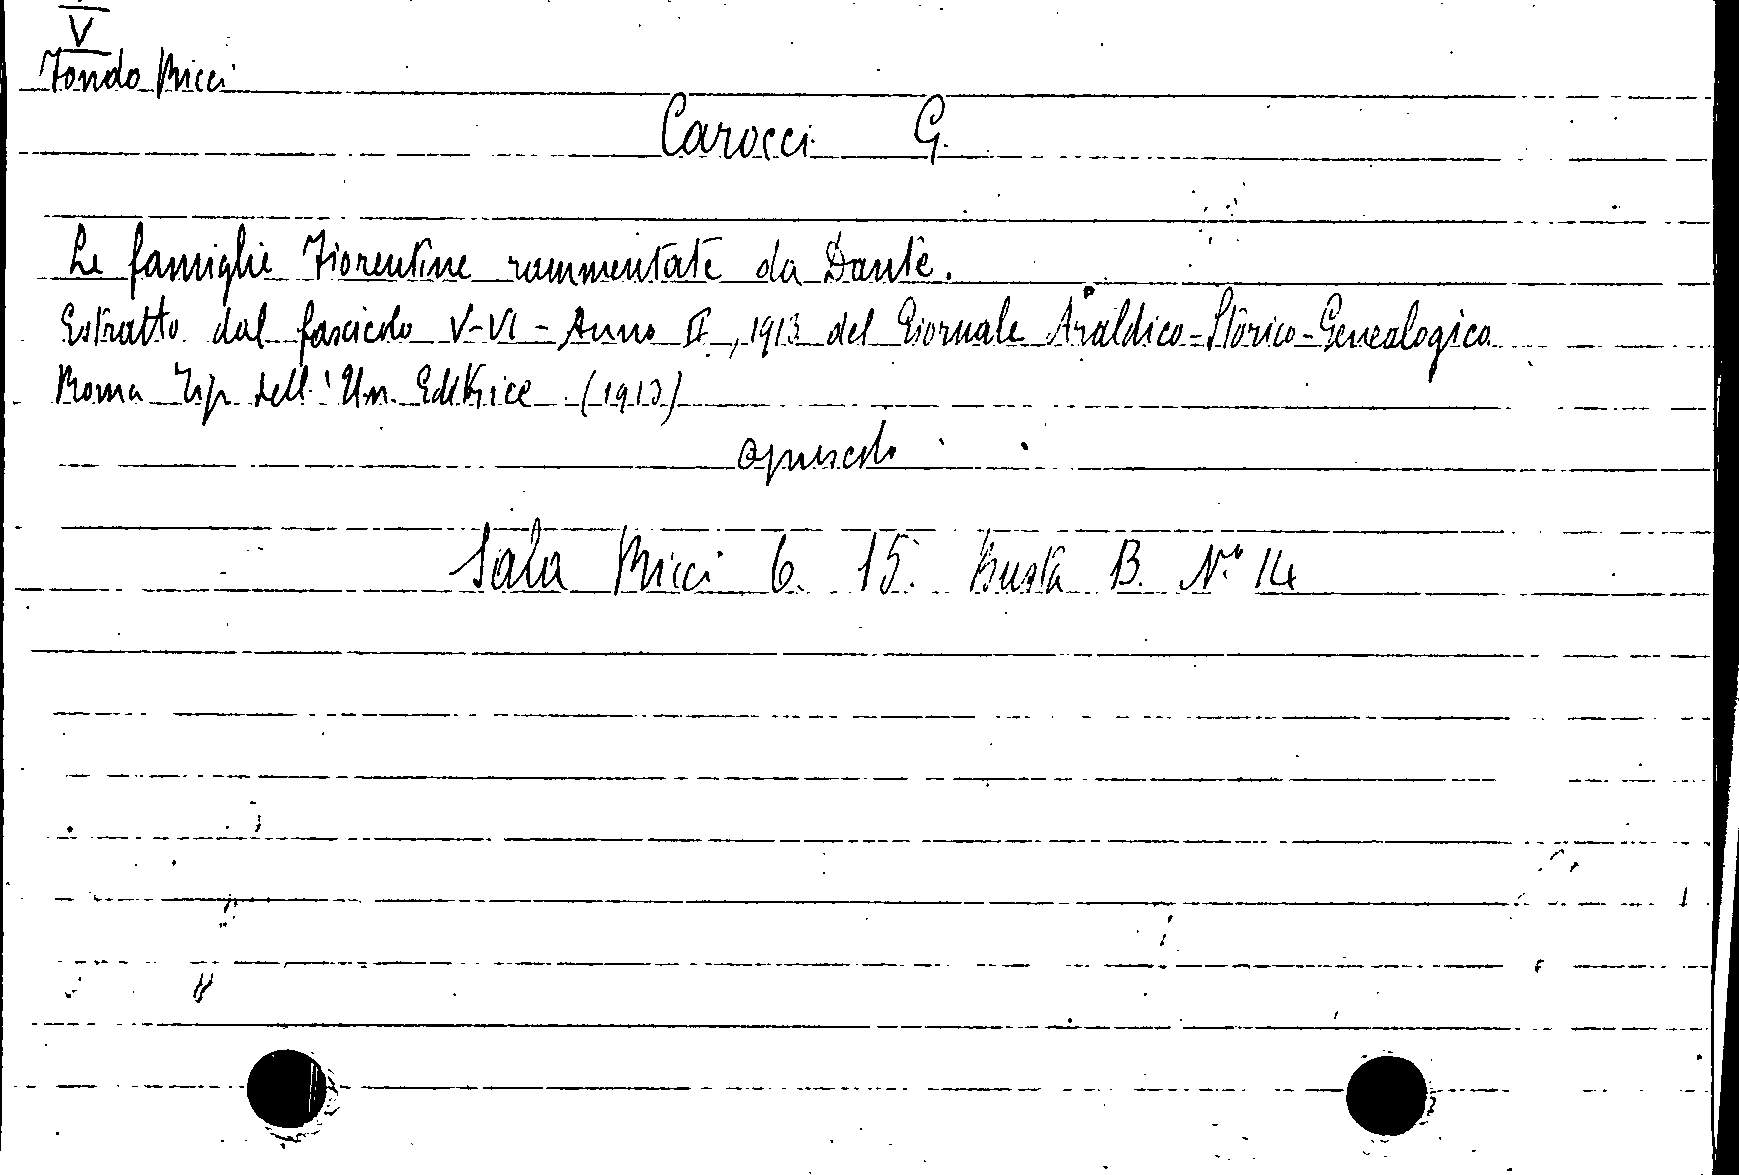 V
Fondo Ricci
Carocci G.
Le famiglie Fiorentine rammentate da Dante.
Estratto dal fascicolo V-VI - Anno II, 1913 del Giornale Araldico-Storico-Genealogico
Roma Tip dell'Un. Editrice (1913)
opuscolo
Sala Ricci 6. 15. Busta B. N.° 14